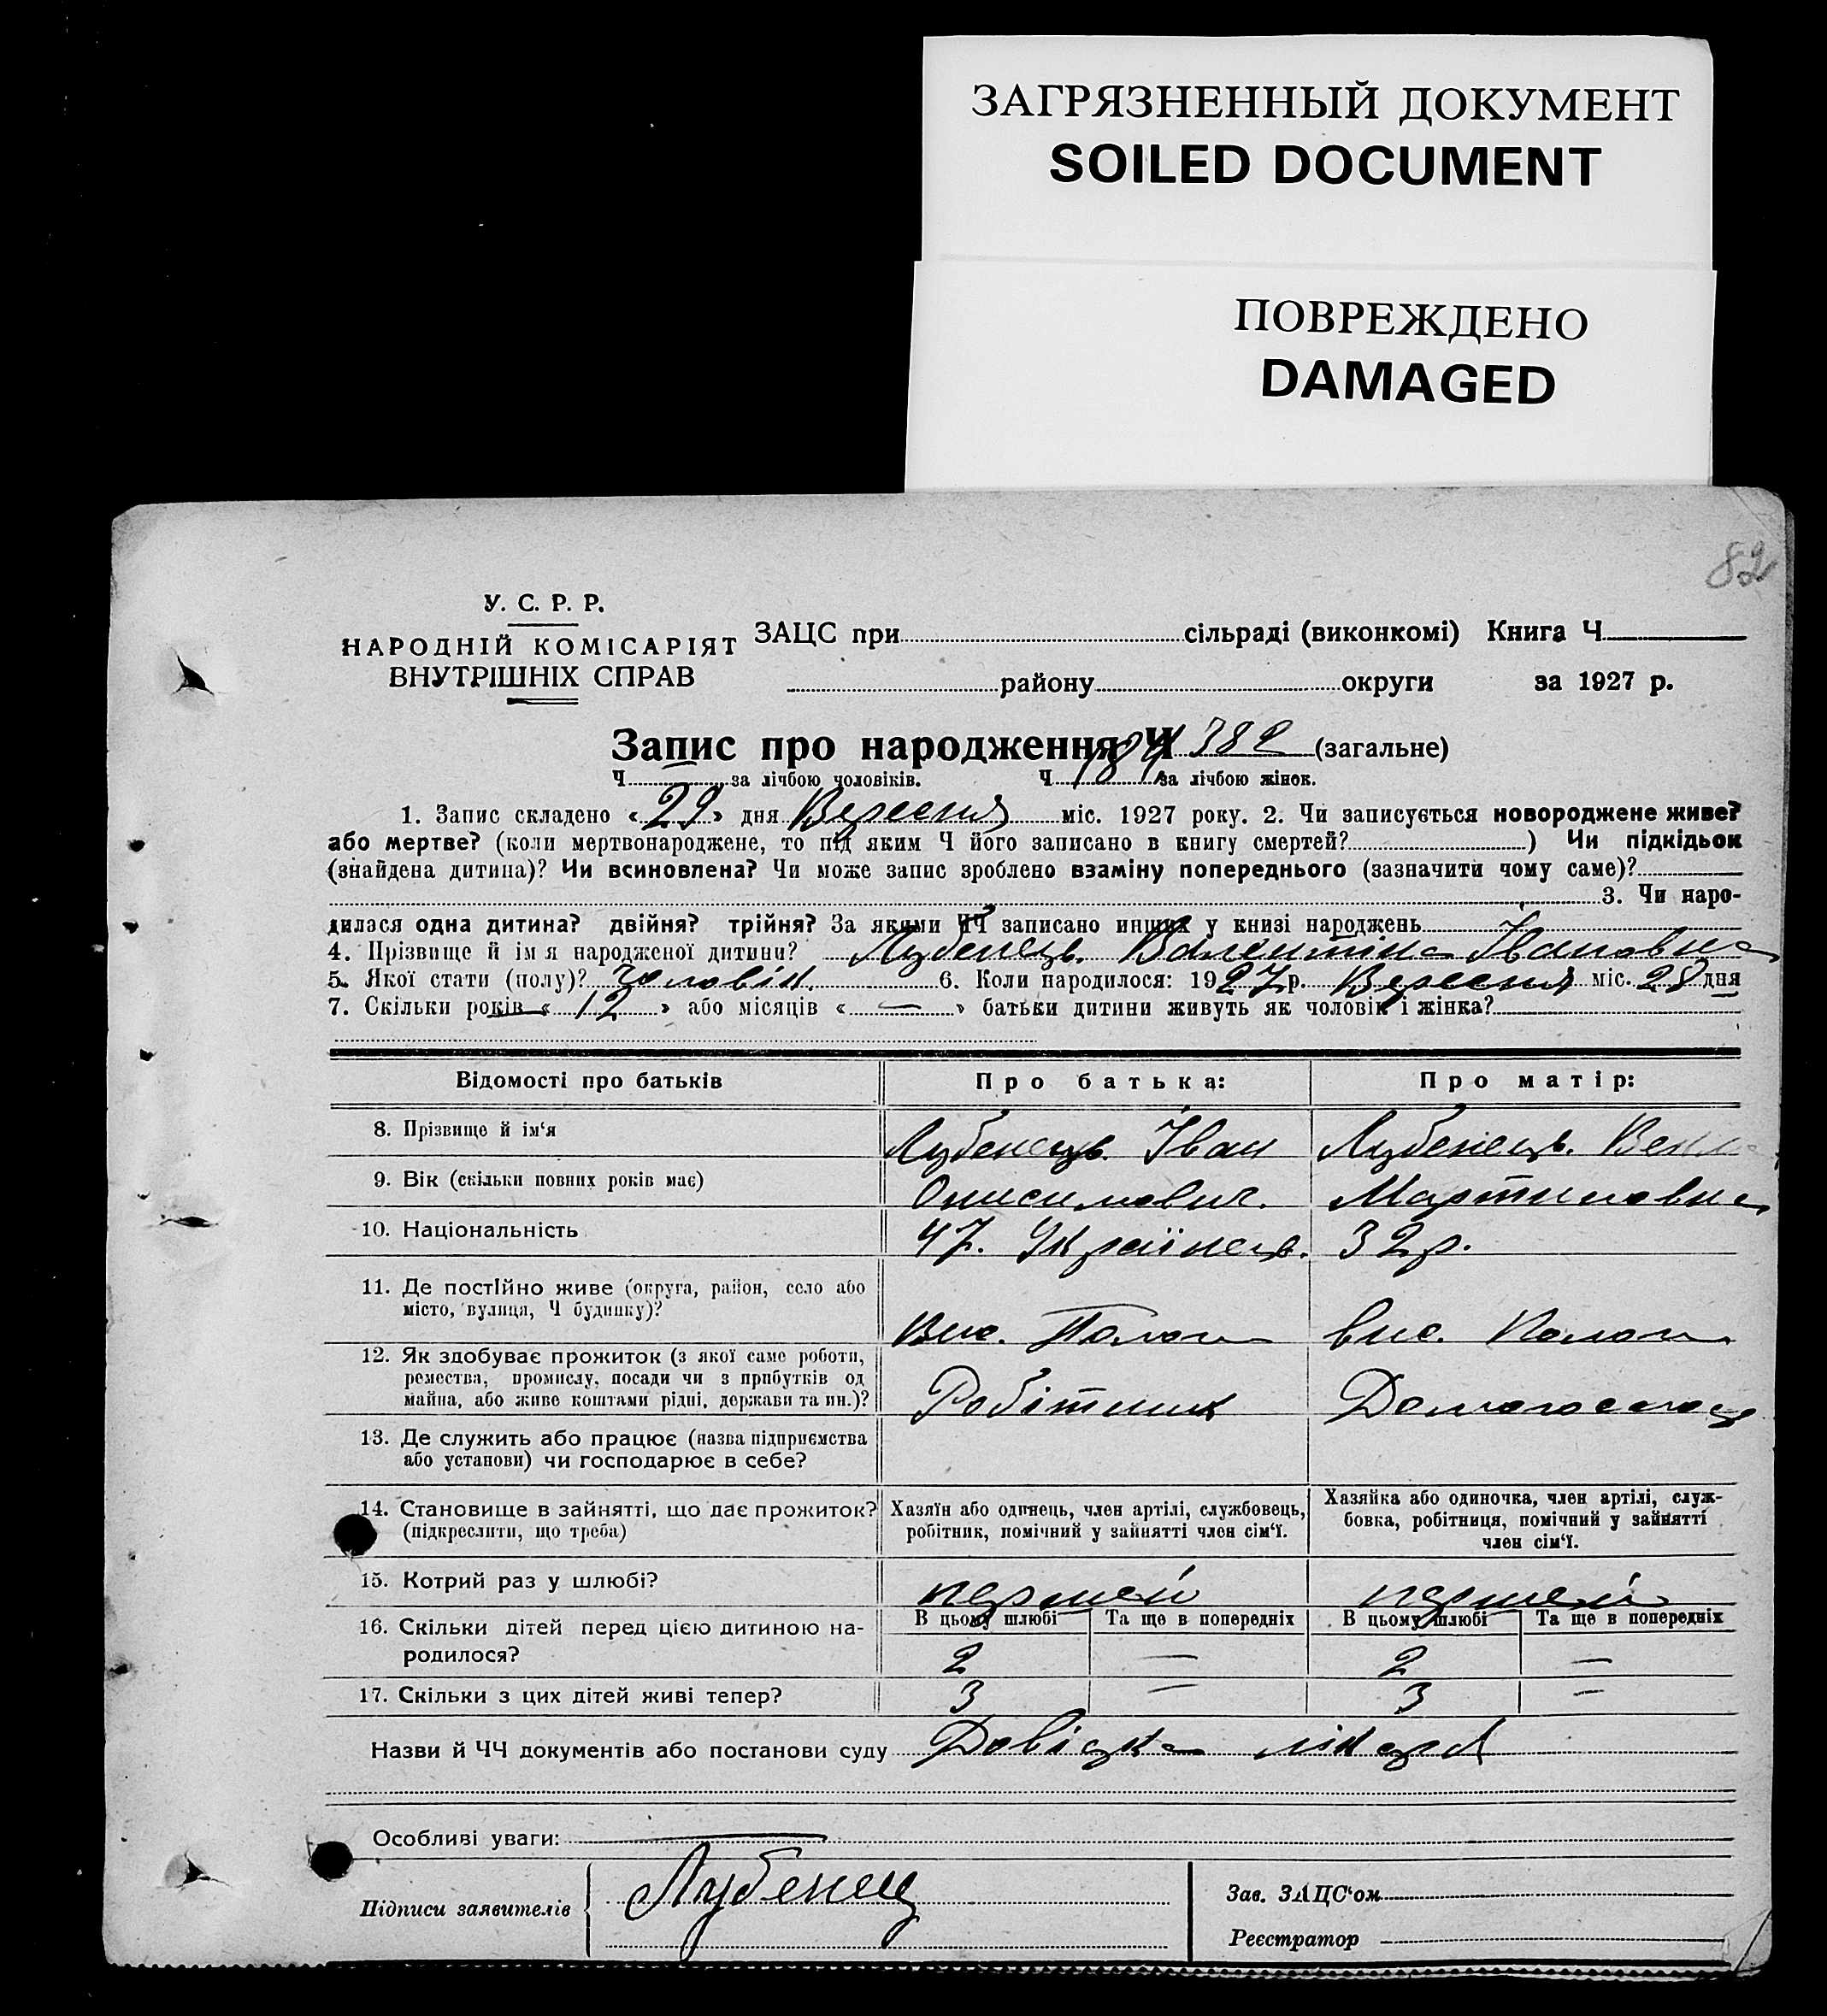 ЗАГРЯЗНЕННЫЙ ДОКУМЕНТ
SOILED DOCUMENT
ПОВРЕЖДЕНО
DAMAGED
82
У. С. Р. Р.
НАРОДНІЙ КОМІСАРІЯТ
ВНУТРІШНІХ СПРАВ
ЗАЦС при сільраді (виконкомі) Книга Ч
району округи за 1927 р.
Запис про народження Ч 382 (загальне)
Ч за лічбою чоловіків. Ч за лічбою жінок.
1. Запис складено « 29 » дня Вересня міс. 1927 року. 2. Чи записується новороджене живе?
або мертве? (коли мертвонароджене, то під яким Ч його записано в книгу смертей? ) Чи підкідьок
(знайдена дитина)? Чи всиновлена? Чи може запис зроблено взаміну попереднього (зазначити чому саме)?
3. Чи наро-
дилася одна дитина? двійня? трійня? За якими ЧЧ записано инших у книзі народжень
4. Прізвище й ім я народженої дитини? Лубенець. Валентіна Івановна
5. Якої стати (полу)? Чоловік. 6. Коли народилося: 1927 р. Вересня міс. 28 дня
7. Скільки років « 12 » або місяців « — » батьки дитини живуть як чоловік і жінка?
Відомості про батьків Про батька: Про матір:
8. Прізвище й ім‘я Лубенець. Іван Лубенець.
9. Вік (скільки повних років має) Онисимович. Мартиновна
10. Національність 47. Українець. 32 р.
11. Де постійно живе (округа, район, село або
місто, вулиця, Ч будинку)?
12. Як здобуває прожиток (з якої саме роботи,
ремества, промислу, посади чи з прибутків од
майна, або живе коштами рідні, держави та ин.)? Робітник
13. Де служить або працює (назва підприємства
або установи) чи господарює в себе?
14. Становище в зайнятті, що дає прожиток?
(підкреслити, що треба)
Хазяїн або одинець, член артілі, службовець,
робітник, помічний у зайнятті член сім‘ї.
Хазяйка або одиночка, член артілі, служ-
бовка, робітниця, помічний у зайнятті
член сім‘ї.
15. Котрий раз у шлюбі? першей першей
16. Скільки дітей перед цією дитиною на-
родилося?
В цьому шлюбі Та ще в попередніх В цьому шлюбі Та ще в попередніх
2 — 2 —
17. Скільки з цих дітей живі тепер? 3 — 3 —
Назви й ЧЧ документів або постанови суду Довідка лікаря
Особливі уваги:
Підписи заявителів Лубенец
Зав. ЗАЦС‘ом
Реєстратор